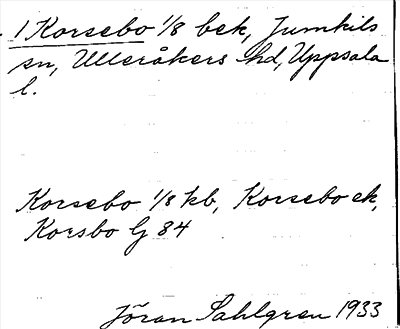 1 Korsebo 1/8 bek, Jumkils
sn, Ulleråkers hd, Uppsala
l.
Korsebo 1/8 kb, Korsebo ek,
Korsbo G 84
Jöran Sahlgren 1933